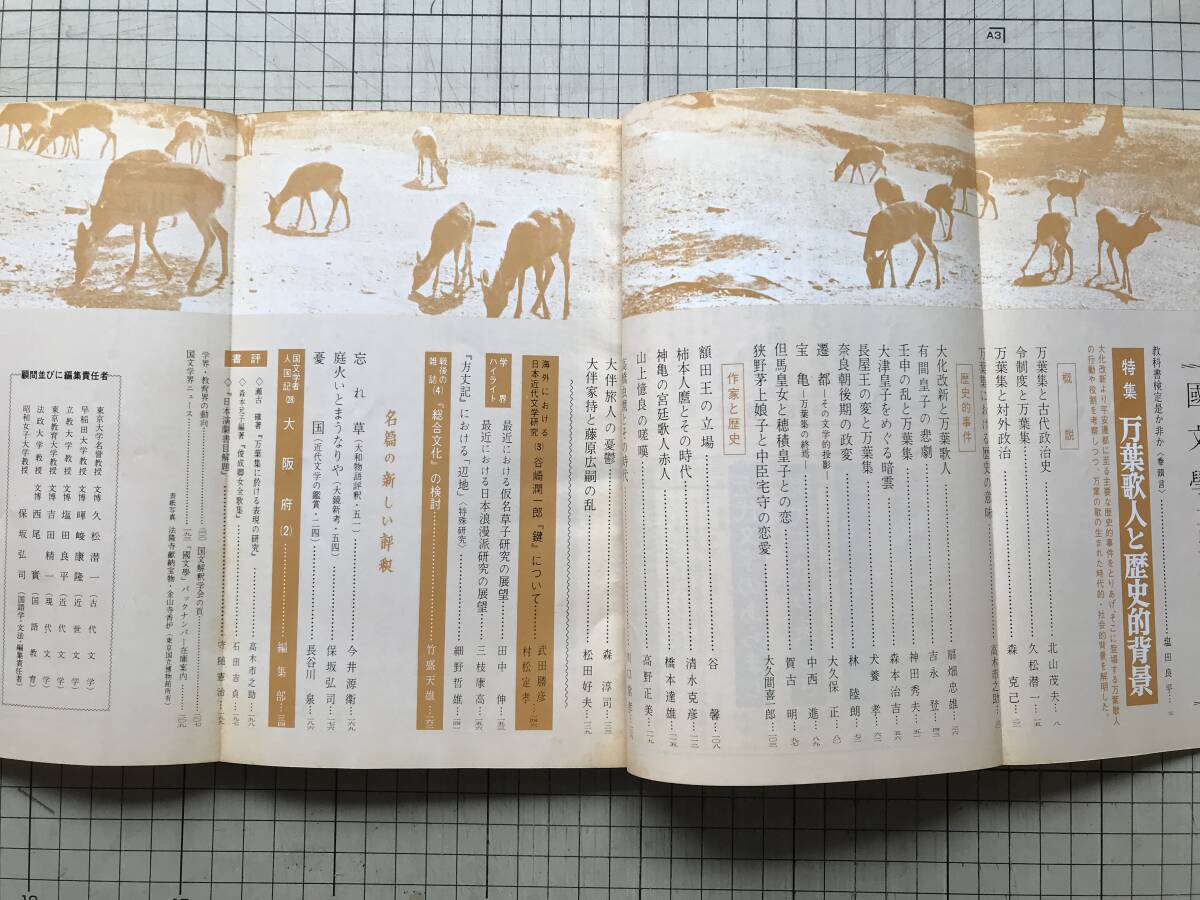 國文學
教科書検定是か非か(巻頭言)……塩田良平…
特集 万葉歌人と歴史的背景
大化改新より平安遷都に至る主要な歴史的事件をとりあげ、そこに登場する万葉歌人
の行動や役割を考察しつつ、万葉の歌の生まれた時代的・社会的背景を解明した。
概説
万葉集と古代政治史……北山茂夫…八
令制度と万葉集……久松潜一…一五
万葉集と対外政治……森克己…
万葉集における歴史の意味……高木市之助…
歴史的事件
大化改新と万葉歌人……扇畑忠雄…
有間皇子の悲劇……吉永登…
壬申の乱と万葉集……神田秀夫…
大津皇子をめぐる暗雲……森本治吉…
長屋王の変と万葉集……犬養孝…
奈良朝後期の政変……林陸朗…
遷都―その文学的投影―……大久保正…
宝亀―万葉集の終焉―……中西進…
但馬皇女と穂積皇子との恋……賀古明…
狭野茅上娘子と中臣宅守の恋愛……大久間喜一郎…一〇三
作家と歴史
額田王の立場……谷馨…一〇八
柿本人麿とその時代……清水克彦…
神亀の宮廷歌人赤人……橋本達雄…
山上憶良の嗟嘆……高野正美…
高橋虫麿とその時代……川口常孝…
大伴旅人の憂鬱……森淳司…
大伴家持と藤原広嗣の乱……松田好夫…
海外における
日本近代文学研究(3)谷崎潤一郎『鍵』について……武田勝彦
村松定孝…
学界
ハイライト
最近における仮名草子研究の展望……田中伸…
最近における日本浪漫派研究の展望……三枝康高…
『方丈記』における「辺地」(特殊研究)……細野哲雄…
戦後の
雑誌(4)『総合文化』の検討……竹盛天雄…
名篇の新しい評釈
忘れ草(大和物語評釈・五一)……今井源衛…
庭火いとまうなりや(大鏡新考・五四)……保坂弘司…
憂国(近代文学の鑑賞・二四)……長谷川泉…
国文学者
人国記(28)大阪府(2)……編集部…
書評
◇瀬古確著『万葉集に於ける表現の研究』……高木市之助…
◇森本元子編著『俊成卿女全歌集』……石田吉貞…
◇『日本演劇書目解題』……守随憲治…
学界・教育界の動向……
国文学界ニュース……
国文解釈学会の頁……
『國文學』バックナンバー在庫案内……
表紙写真 法隆寺献納宝物・金山寺香炉(東京国立博物館所有)
顧問並びに編集責任者
東京大学名誉教授 文博 久松潜一(古代文学)
早稲田大学教授 文博 暉峻康隆(近世文学)
立教大学教授 文博 塩田良平(近代文学)
東京教育大学教授 文博 吉田精一(現代文学)
法政大学教授 文博 西尾實(国語教育)
昭和女子大学教授 保坂弘司(国語学・文法・編集責任者)
A3